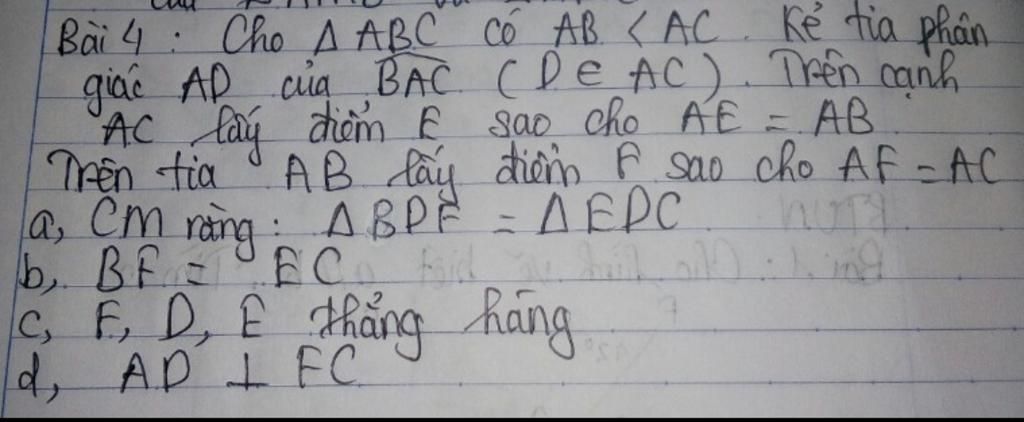 Bài 4 : Cho Δ ABC có AB < AC. Kẻ tia phân
giác AD của BAC ( D ∈ AC ). Trên cạnh
AC lấy điểm E sao cho AE = AB.
Trên tia AB lấy điểm F sao cho AF = AC
a, CM rằng : Δ BDF = Δ EDC
b, BF = EC
c, F, D, E thẳng hàng
d, AD ⊥ FC